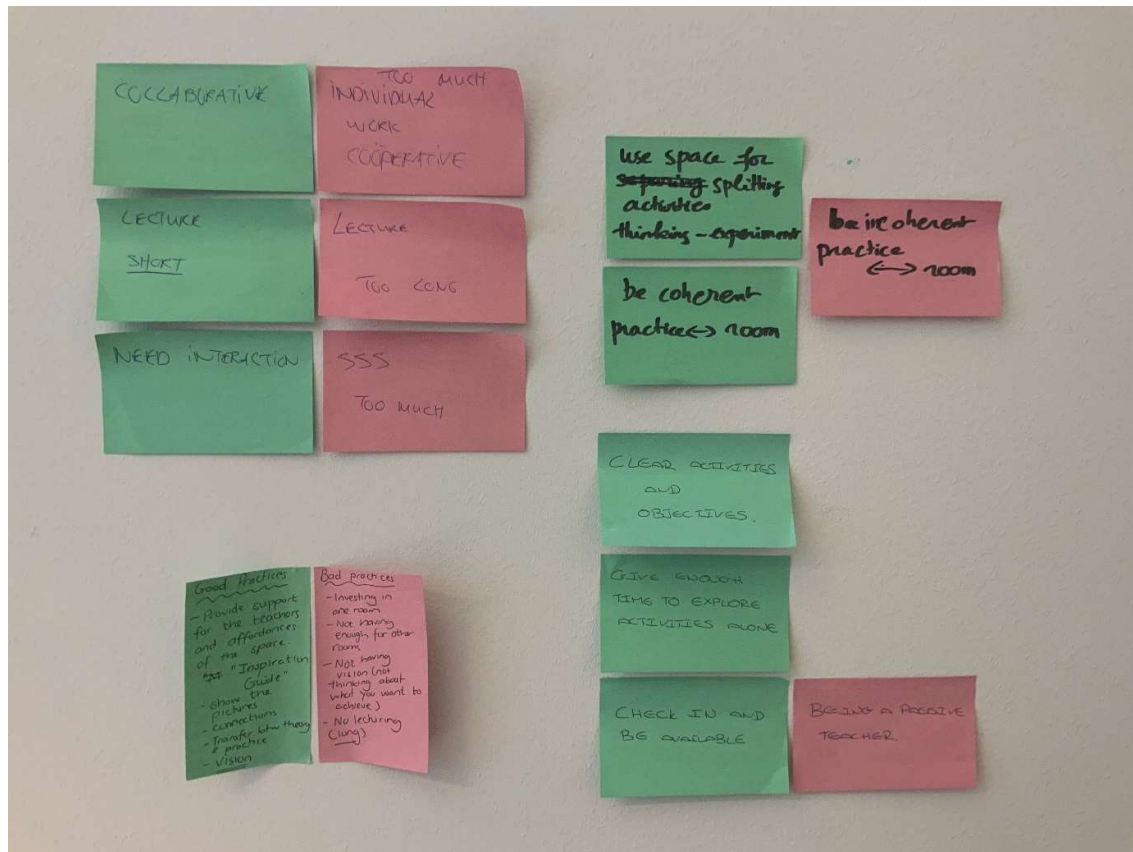 COLLABORATIVE
TOO MUCH
INDIVIDUAL
WORK
COÖPERATIVE
LECTURE
SHORT
LECTURE
TOO LONG
NEED INTERACTION
SSS
TOO MUCH
use space for
splitting
activities
thinking - experiment
be coherent
practice <-> room
be incoherent
practice
<-> room
CLEAR ACTIVITIES
AND
OBJECTIVES.
GIVE ENOUGH
TIME TO EXPLORE
ACTIVITIES ALONE
CHECK IN AND
BE AVAILABLE
BEING A PASSIVE
TEACHER
Good Practices
- Provide support
for the teachers
and affordances
of the space.
"Inspiration
Guide"
- Show the
pictures
- connections
- Transfer btw theory
& practice
- Vision
Bad practices
- Investing in
one room
- Not having
enough for other
rooms
- Not having
vision (not
thinking about
what you want to
achieve)
- No lecturing
(long)